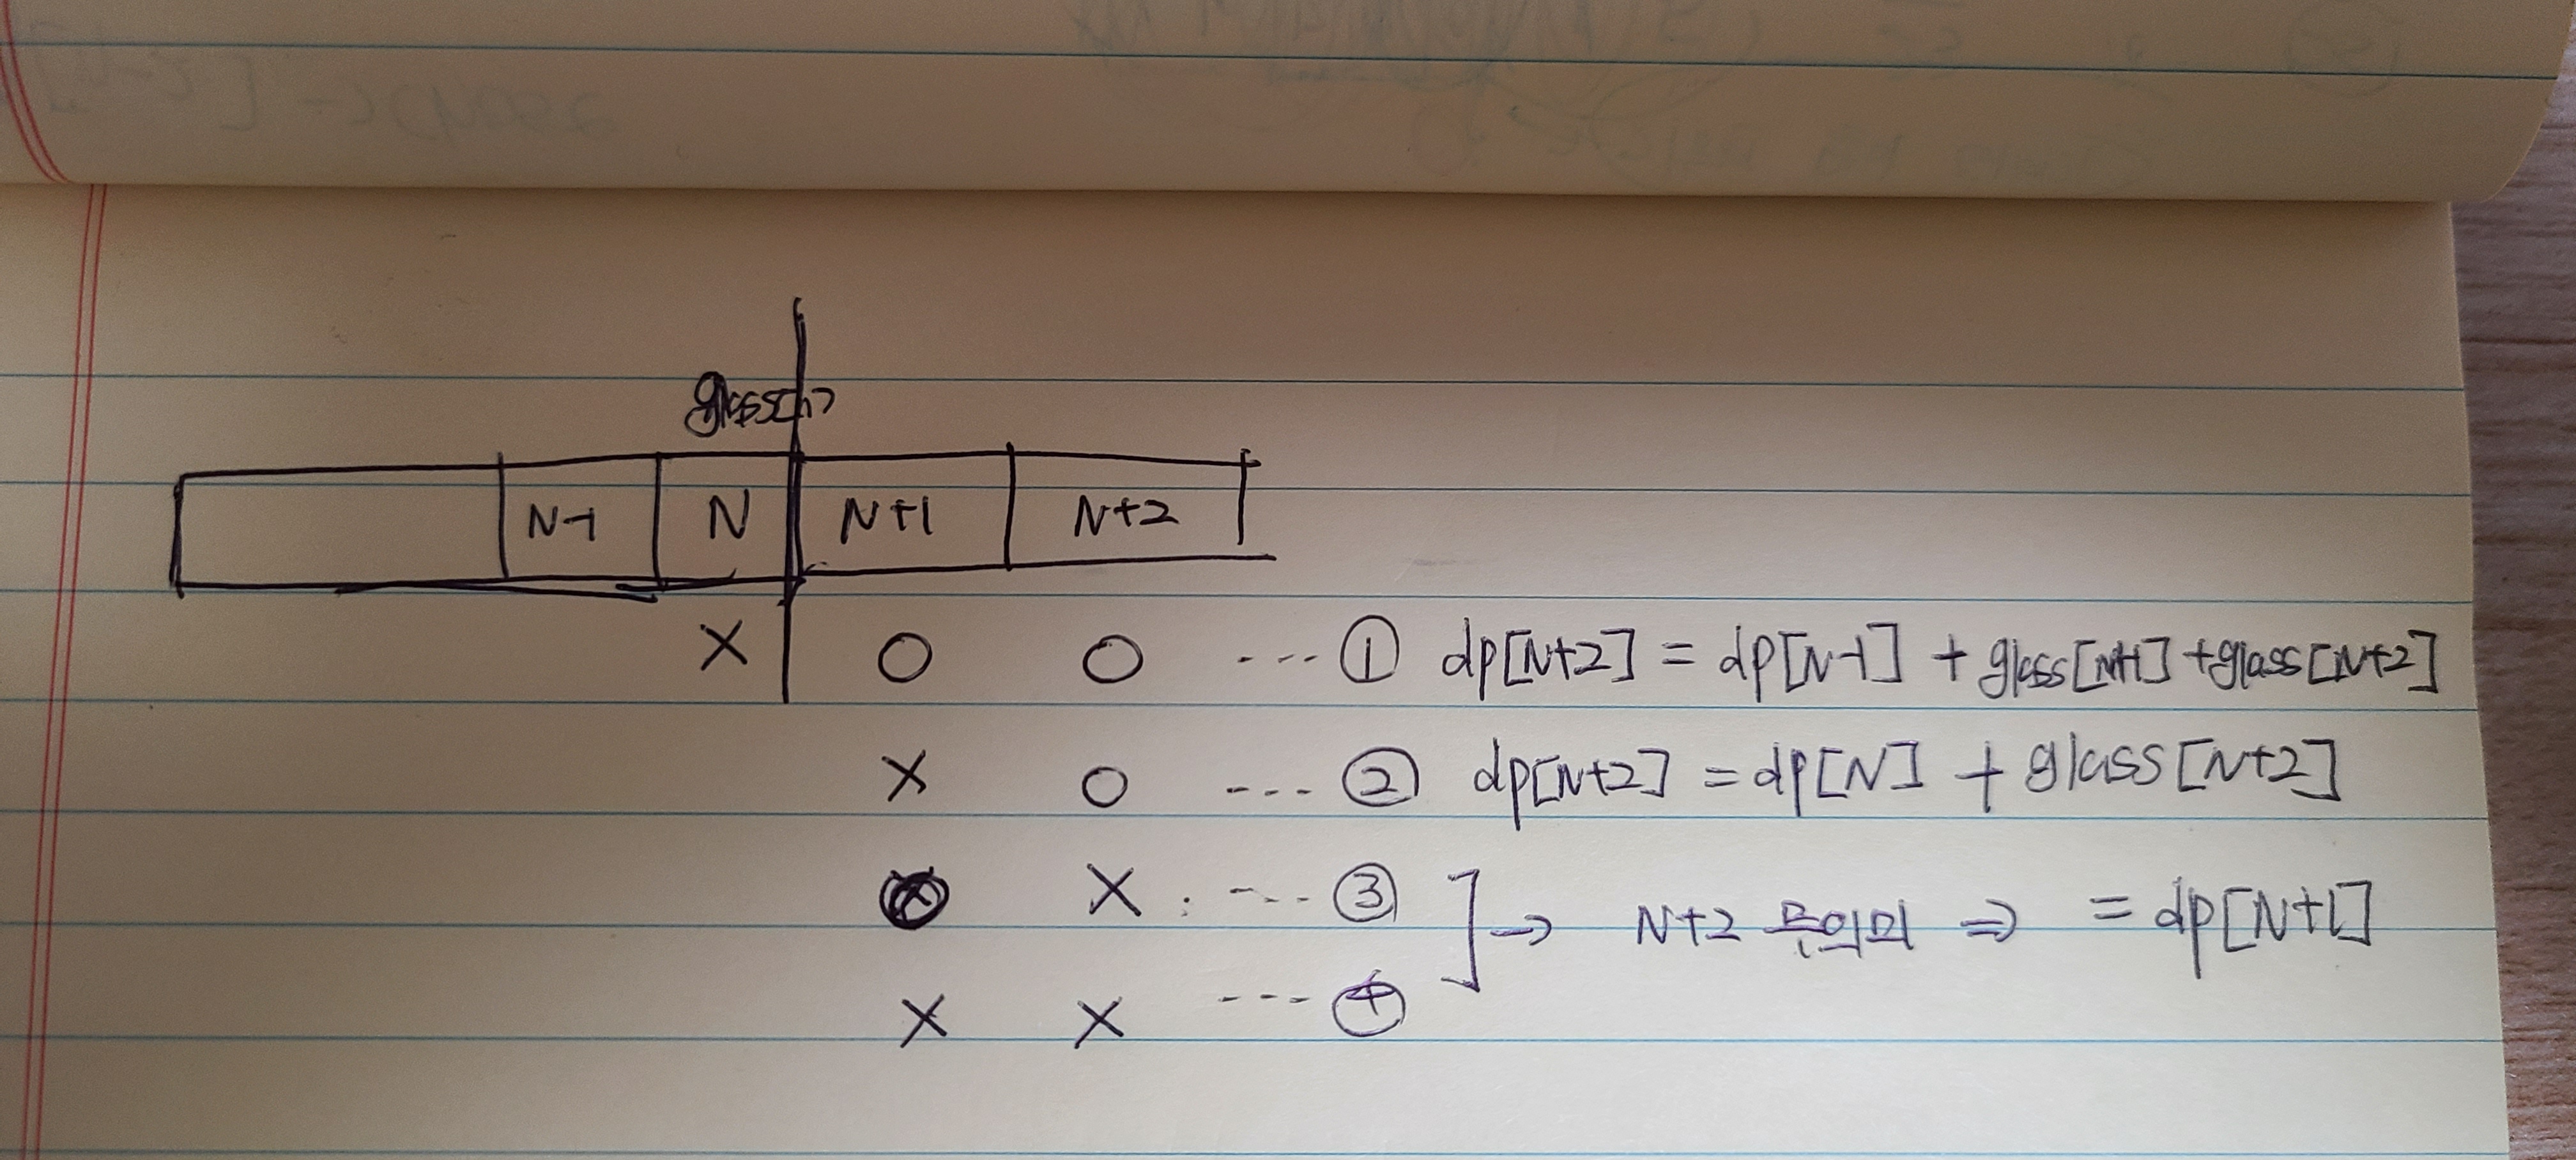 glass[]
N-1 N N+1 N+2
X O O ---- ① dp[N+2] = dp[N-1] + glass[N+1] + glass[N+2]
X O ---- ② dp[N+2] = dp[N] + glass[N+2]
X ---- ③
X X ---- ④
] → N+2 무의미 ⇒ = dp[N+1]